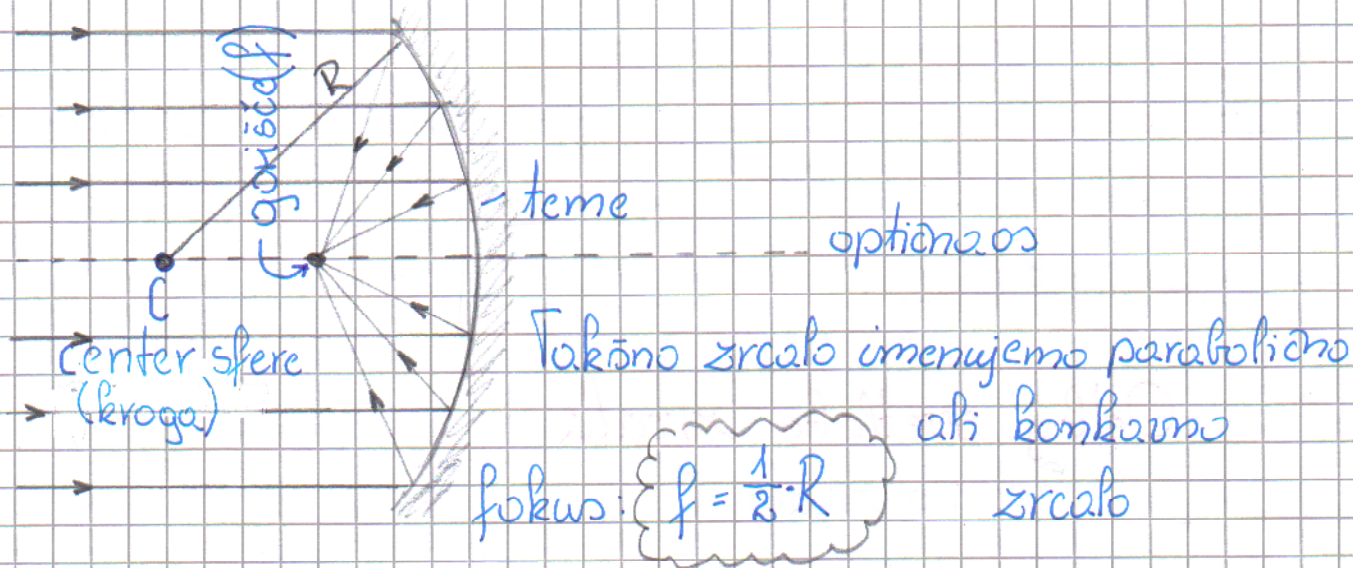 gorišče(f)
R
teme
optična os
C
center sfere
(kroga)
Takšno zrcalo imenujemo parabolično
ali konkavno
zrcalo
fokus: f = 1/2 · R